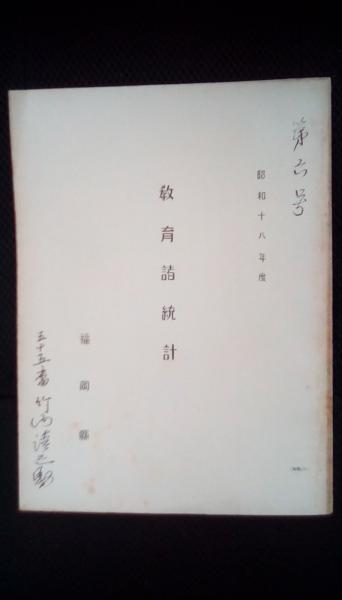 第六号
昭和十八年度
教育諸統計
福岡縣
五十五番 竹内